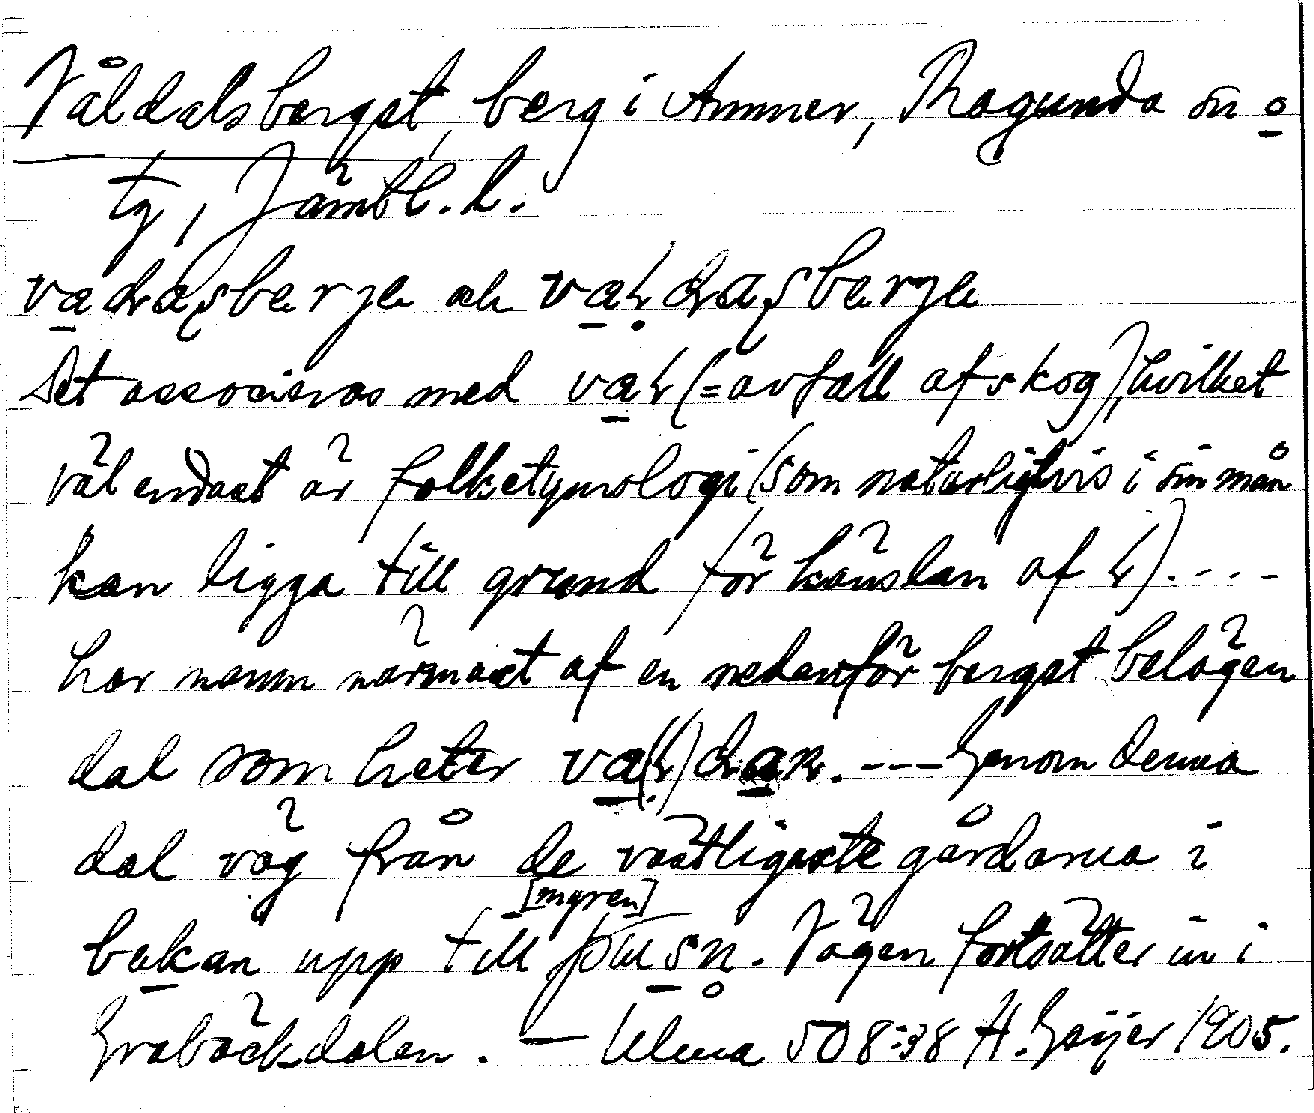 Våldalsberget, berg i Ammer, Ragunda sn o
tg, Jämtl. l.
vadasberje och vaɽdasberje
Det associeras med vaɽ (= avfall af skog), hvilket
väl endast är folketymologi (som naturligtvis i sin mån
kan ligga till grund för känslan af ɽ). - - -
har namn närmast af en nedanför berget belägen
dal som heter va(ɽ)dan. --- Genom denna
dal väg från de västligaste gårdarna i
bakan upp till [myren] pusn. Vägen fortsätter in i
Grabäckdalen. — Ulma 508:38 H. Geijer 1905.